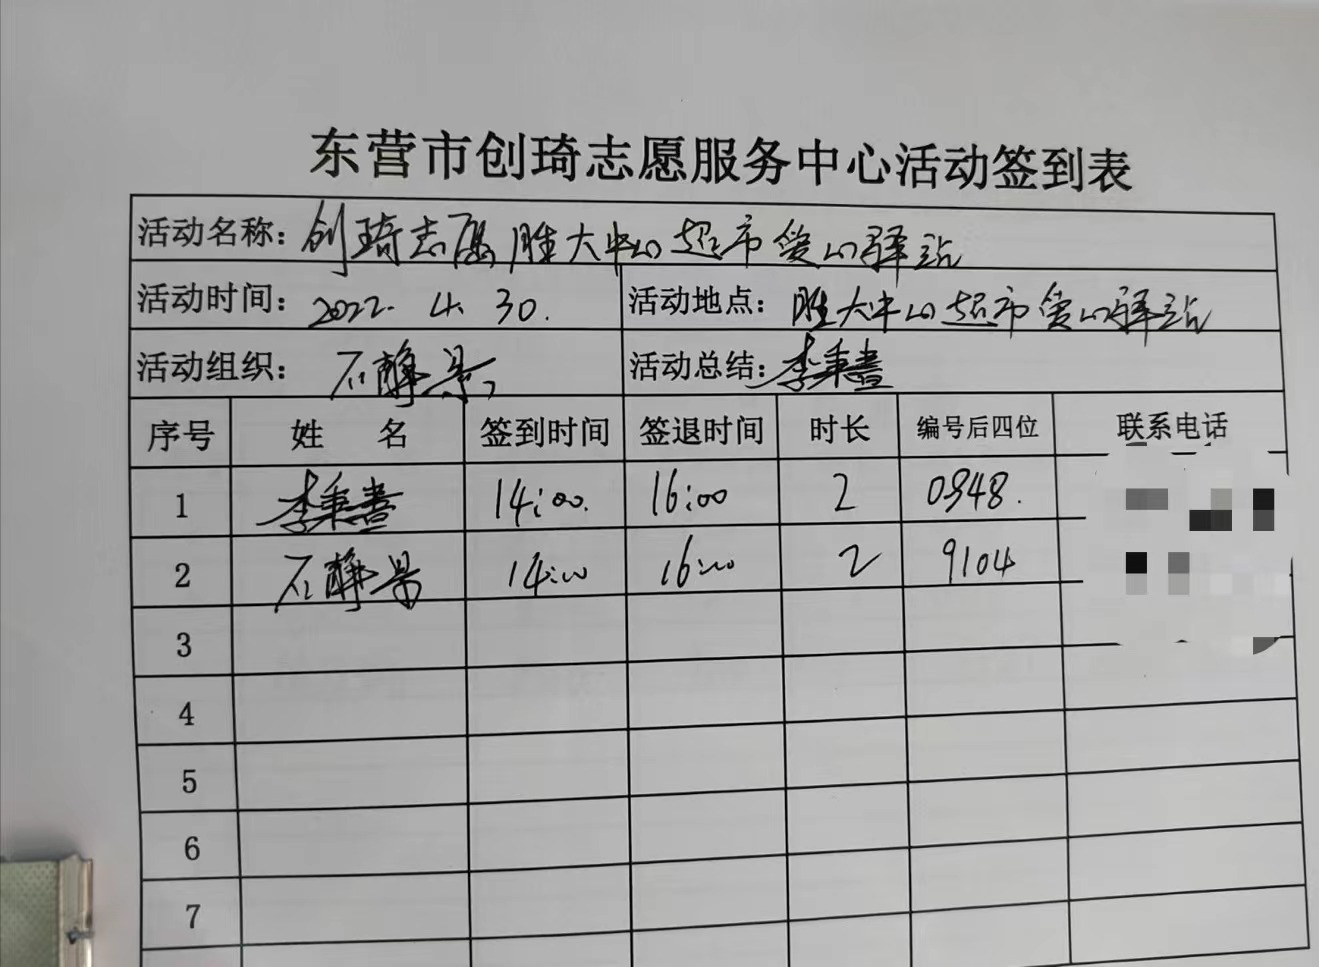 东营市创琦志愿服务中心活动签到表
活动名称：创琦志愿胜大中心超市爱心驿站
活动时间：2022.4.30. 活动地点：胜大中心超市爱心驿站
活动组织：石静景 活动总结：李秉書
序号 姓名 签到时间 签退时间 时长 编号后四位 联系电话
1 李秉書 14:00 16:00 2 0948.
2 石静景 14:00 16:00 2 9104
3
4
5
6
7